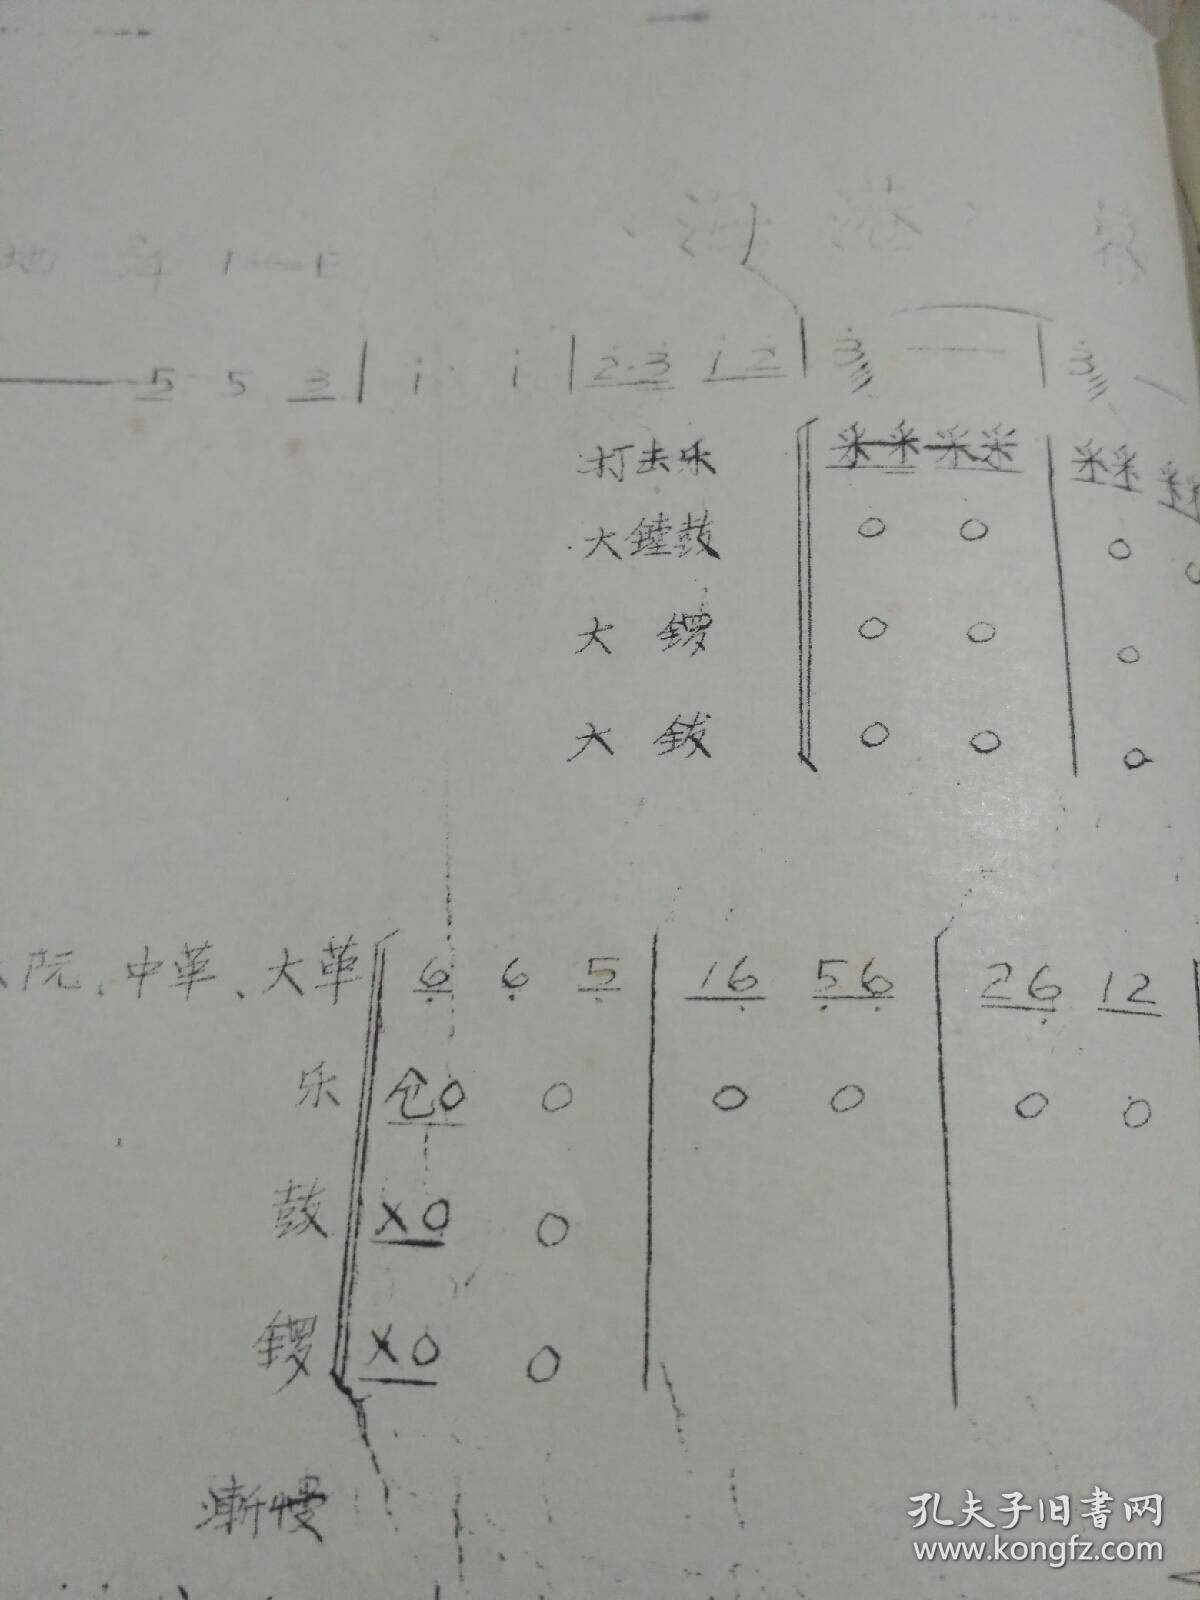 海港
5 5 3 | i· i | 2·3 i 2 | 3 — | 3
打击乐 采采采采 | 采采
大锣鼓 0 0 | 0
大锣 0 0 | 0
大钹 0 0 | 0
阮、中革、大革 6 6 5 | 16 56 | 26 12
乐 仓0 0 | 0 0 | 0 0
鼓 X0 0
锣 X0 0
渐慢
孔夫子旧书网
www.kongfz.com